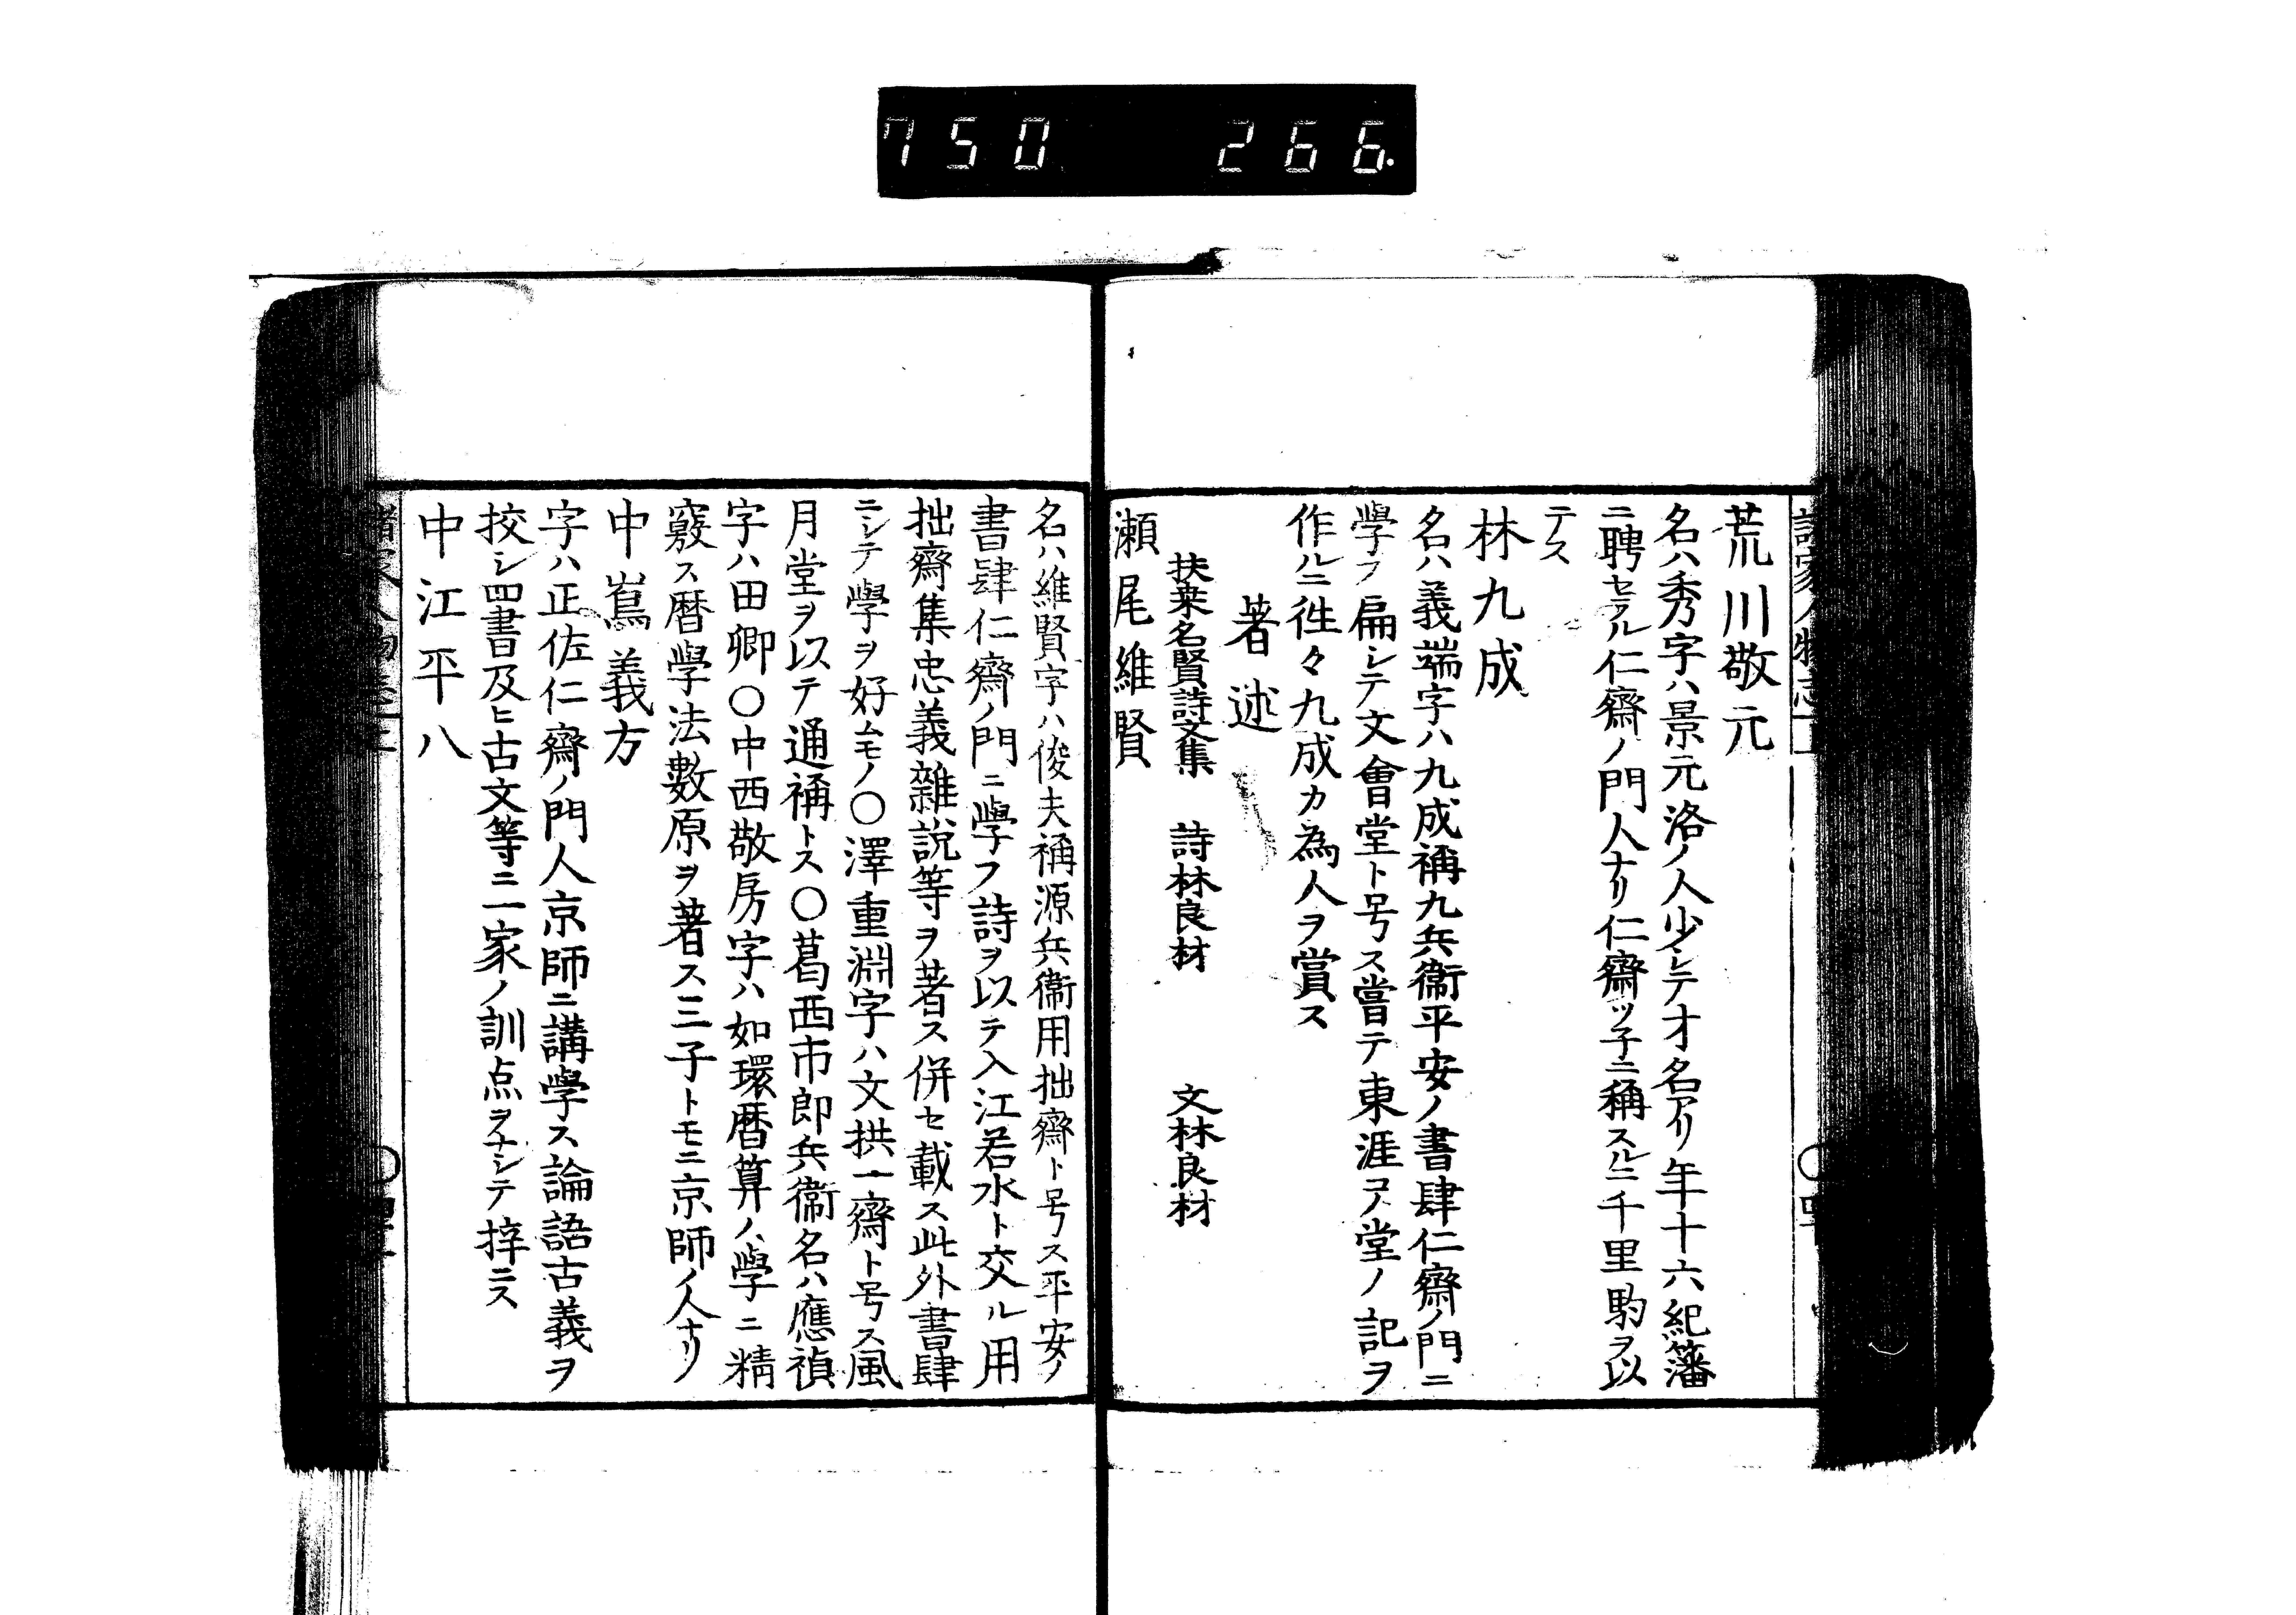 750 266.
荒川敬元
名ハ秀字ハ景元洛ノ人少シテ才名アリ年十六紀籓
ニ聘セラル仁齋ノ門人ナリ仁齋ツ子ニ稱スルニ千里駒ヲ以
テス
林九成
名ハ義端字ハ九成稱九兵衞平安ノ書肆仁齋ノ門ニ
學フ扁シテ文會堂ト号ス嘗テ東涯コノ堂ノ記ヲ
作ルニ徃々九成カ為人ヲ賞ス
著述
扶桒名賢詩文集 詩林良材 文林良材
瀬尾維賢
名ハ維賢字ハ俊夫稱源兵衞用拙齋ト号ス平安ノ
書肆仁齋ノ門ニ學フ詩ヲ以テ入江若水ト交ル用
拙齋集忠義雜說等ヲ著ス併セ載ス此外書肆
ニシテ學ヲ好ムモノ〇澤重淵字ハ文拱一齋ト号ス風
月堂ヲ以テ通稱トス〇葛西市郎兵衞名ハ應禎
字ハ田卿〇中西敬房字ハ如環暦算ノ學ニ精
竅ス暦學法數原ヲ著ス三子トモニ京師ノ人ナリ
中嶌義方
字ハ正佐仁齋ノ門人京師ニ講學ス論語古義ヲ
挍シ四書及ヒ古文等ニ一家ノ訓点ヲナシテ梓ニス
中江平八